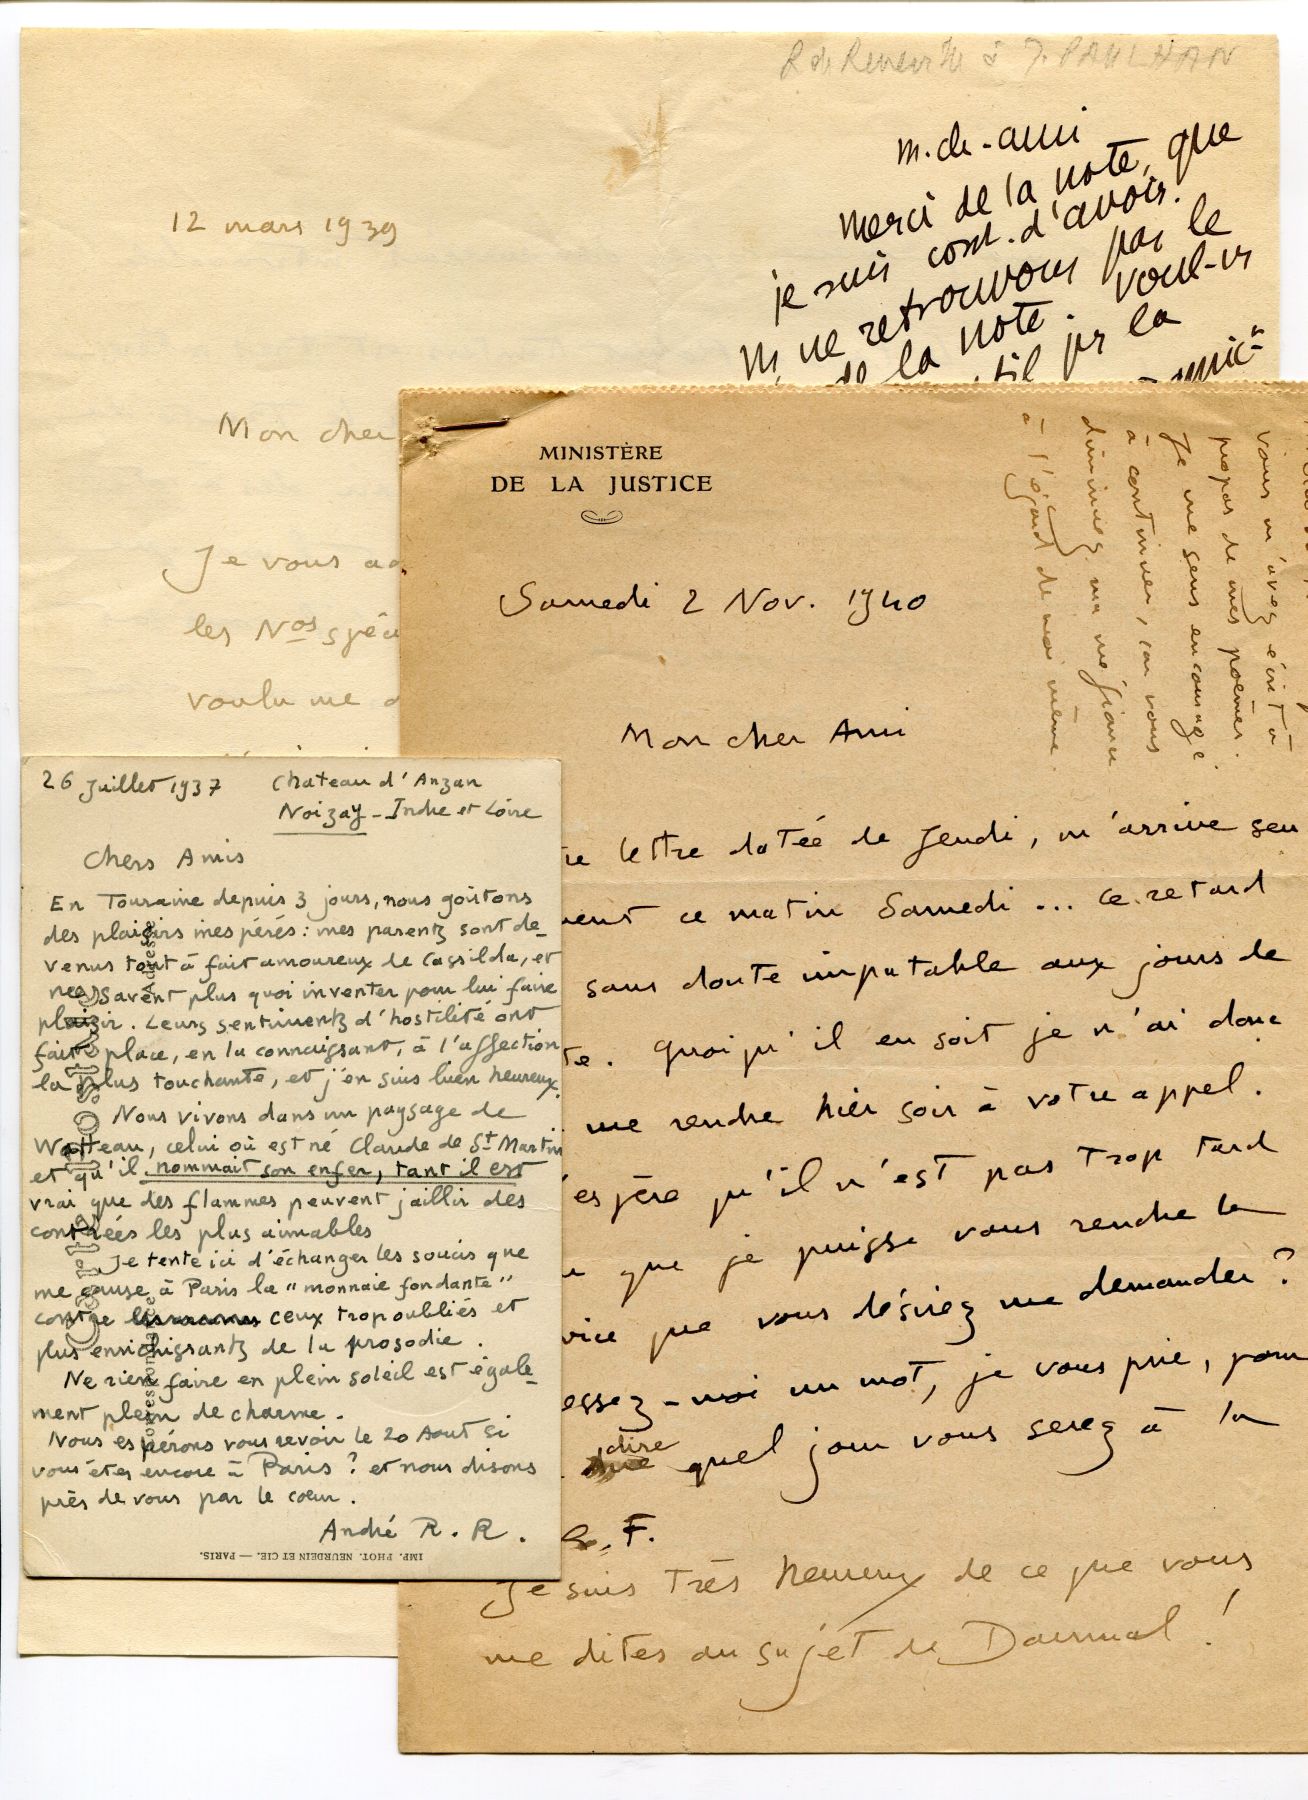 R de Reneville à J. PAULHAN
m. ch. ami
merci de la note, que
je suis cont. d'avoir.
ns ne retrouvons pas le
de la note. voul-vs
pr la
amic.
12 mars 1939
Mon cher
Je vous
les Nos spéc
voulu me
MINISTÈRE
DE LA JUSTICE
Samedi 2 Nov. 1940
Mon cher Ami
re lettre datée de Jeudi, m'arrive seu
ment ce matin Samedi ... ce retard
sans doute imputable aux jours de
te. Quoiqu'il en soit je n'ai donc
me rendre hier soir à votre appel.
'espère qu'il n'est pas trop tard
que je puisse vous rendre le
vice que vous désirez me demander ?
essez-moi un mot, je vous prie, pour
dire quel jour vous serez à la
F.
Je suis très heureux de ce que vous
me dites au sujet de Daumal !
vous m'avez écrit à
propos de mes poèmes.
Je me sens encouragé
à continuer, car vous
diminuez ma méfiance
à l'égard de moi-même.
26 Juillet 1937
Chateau d'Anzan
Noizay - Indre et Loire
Chers Amis
En Touraine depuis 3 jours, nous goûtons
des plaisirs inespérés : mes parents sont de-
venus tout à fait amoureux de Cassilda, et
ne savent plus quoi inventer pour lui faire
plaisir. Leurs sentiments d'hostilité ont
fait place, en la connaissant, à l'affection
la plus touchante, et j'en suis bien heureux.
Nous vivons dans un paysage de
Watteau, celui où est né Claude de St Martin
et qu'il nommait son enfer, tant il est
vrai que des flammes peuvent jaillir des
contrées les plus aimables
Je tente ici d'échanger les soucis que
me cause à Paris la "monnaie fondante"
contre ceux trop oubliés et
plus enrichissants de la prosodie.
Ne rien faire en plein soleil est égale-
ment plein de charme.
Nous espérons vous revoir le 20 Aout si
vous êtes encore à Paris ? et nous disons
près de vous par le coeur.
André R. R.
IMP. PHOT. NEURDEIN ET CIE. — PARIS.
Carte Postale
Correspondance
Adresse